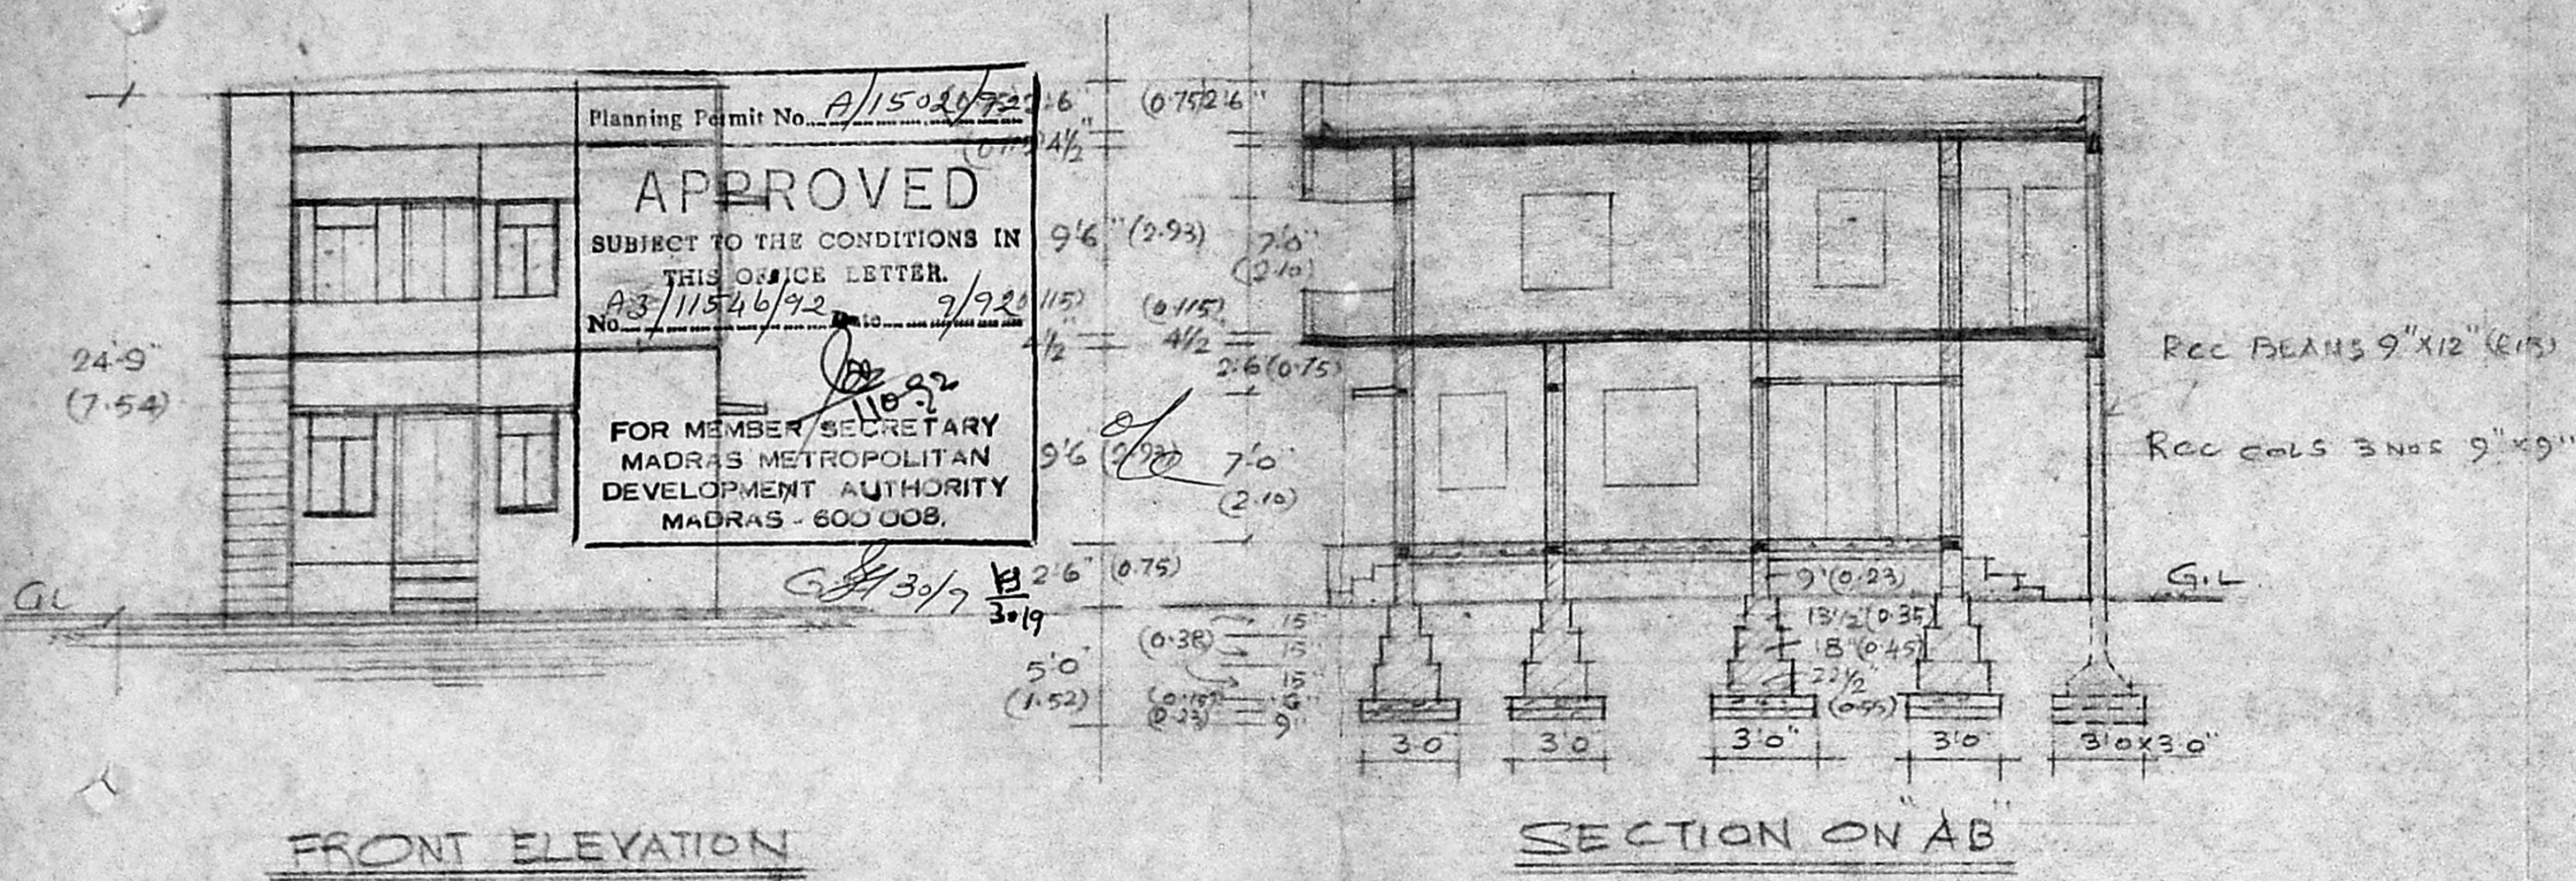 Planning Permit No. A/15020/92
APPROVED
SUBJECT TO THE CONDITIONS IN
THIS OFFICE LETTER.
No. A3/11546/92 Date 9/92
FOR MEMBER SECRETARY
MADRAS METROPOLITAN
DEVELOPMENT AUTHORITY
MADRAS - 600 008.
30/9
30/9
24'-9"
(7.54)
GL
FRONT ELEVATION
2'6"
(0.75) 2'6"
(0.115) 4½"
9'6" (2.93)
7'0"
(2.10)
(0.115)
4½"
(0.115)
4½"
2'6 (0.75)
9'6 (2.93)
7'0"
(2.10)
2'6" (0.75)
5'0"
(1.52)
(0.38)
15"
15"
15"
(0.15) 6"
(0.23) 9"
9" (0.23)
13½" (0.35)
18" (0.45)
22½"
(0.55)
3'0
3'0
3'0"
3'0
3'0 x 3'0"
RCC BEAMS 9"X12"
RCC COLS 3 NOS 9"x9"
G.L
SECTION ON "AB"